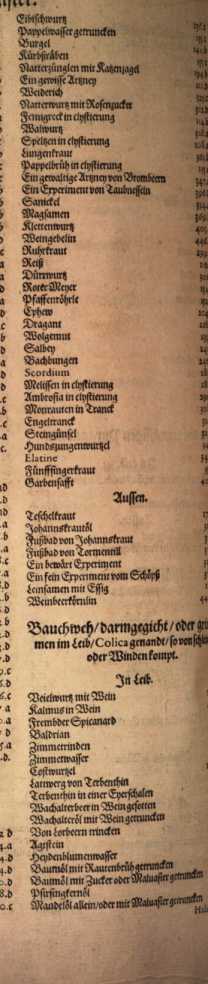 Eibischwurtz
Pappelwasser getruncken
Burgel
Kürbßräben
Natterzünglen mit Katzenzagel
Ein gewisse Artzney
Weiderich
Natterwurtz mit Rosenzucker
Fenugreck in clystierung
Walwurtz
Speltzen in clystierung
Lungenkraut
Pappelbrüh in clystierung
Ein gewaltige Artzney von Brombeern
Ein Experiment von Taubnesseln
Sanickel
Magsamen
Klettenwurtz
Weingebelin
Ruhrkraut
Reiß
Dürrwurtz
Roter Meyer
Pfaffenröhrle
Ephew
Dragant
Wolgemut
Salbey
Bachbungen
Scordium
Melissen in clystierung
Ambrosia in clystierung
Monrauten in Tranck
Engeltranck
Steingünsel
Hundszungenwurtzel
Elatine
Fünfffingerkraut
Garbensafft
Aussen.
Teschelkraut
Johannskrautöl
Fußbad von Johannskraut
Fußbad von Tormentill
Ein bewärt Experiment
Ein fein Experiment vom Schöpß
Leinsamen mit Essig
Weinbeerkörnlin
Bauchweh/ darmgegicht/ oder
men im Leib/ Colica genandt/ so von
oder Winden kompt.
In Leib.
Veielwurtz mit Wein
Kalmus in Wein
Frembder Spicanard
Baldrian
Zimmetrinden
Zimmetwasser
Costwurtzel
Lattwerg von Terbenthin
Terbenthin in einer Eyerschalen
Wachalterbeer in Wein gesotten
Wachalteröl mit Wein getruncken
Von Lorbeern trincken
Agstein
Heydenblumenwasser
Baumöl mit Rautenbrüh getruncken
Baumöl mit Zucker oder Maluasier getruncken
Pfirsingkernöl
Mandelöl allein/ oder mit Maluasier getruncken